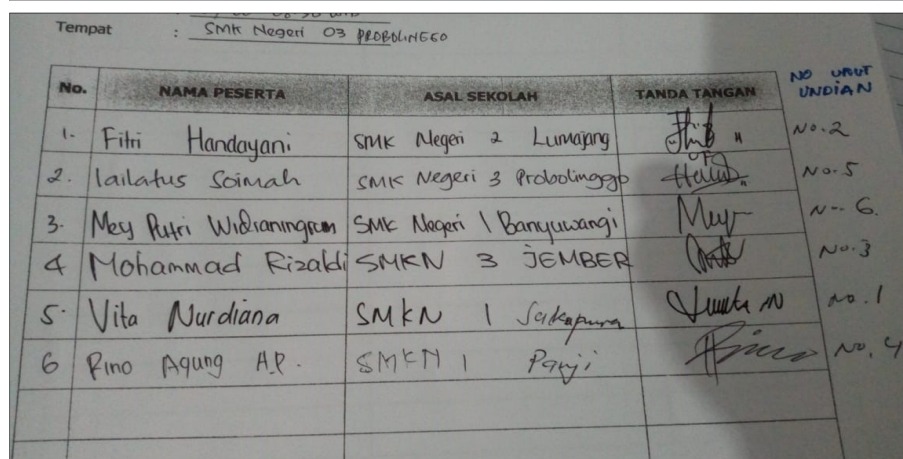 Tempat : SMK Negeri 03 PROBOLINGGO
NO URUT
UNDIAN
No. NAMA PESERTA ASAL SEKOLAH TANDA TANGAN
1. Fitri Handayani SMK Negeri 2 Lumajang No. 2
2. lailatus Soimah SMK Negeri 3 Probolinggo No. 5
3. Mey Putri Widianingrum SMK Negeri 1 Banyuwangi Mey N-- 6.
4 Mohammad Rizaldi SMKN 3 JEMBER No. 3
5. Vita Nurdiana SMKN 1 Sukapura No. 1
6 Rino Agung A.P. SMKN 1 Panji Rino No. 4